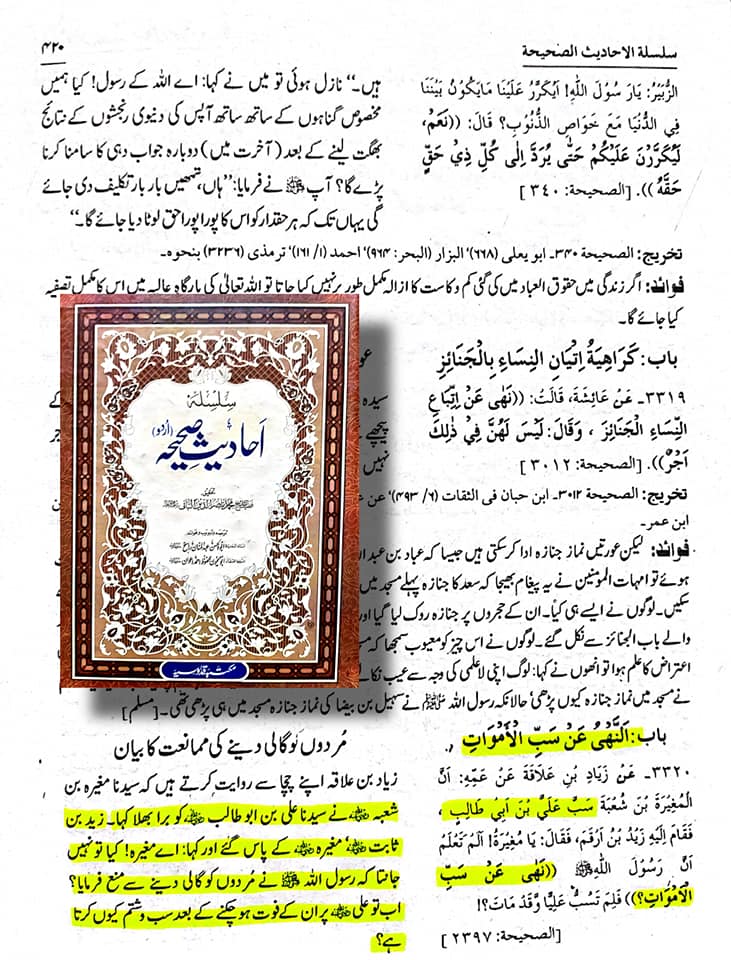 سلسلة الاحاديث الصحيحة
۴۲۰
الزُّبَيْرُ: يَارَ سُوْلَ اللّٰهِ! اَيُكَرَّرُ عَلَيْنَا مَايَكُوْنُ بَيْنَنَا
فِي الدُّنْيَا مَعَ خَوَاصِ الذُّنُوْبِ؟ قَالَ: ((نَعَمْ،
لَيُكَرَّرَنَّ عَلَيْكُمْ حَتّٰى يُرَدَّ اِلٰى كُلِّ ذِيْ حَقٍّ
حَقَّهُ)). [الصحيحة: ۳۴۰]
ہیں۔‘‘ نازل ہوئی تو میں نے کہا: اے اللہ کے رسول! کیا ہمیں
مخصوص گناہوں کے ساتھ ساتھ آپس کی دنیوی رنجشوں کے نتائج
بھگت لینے کے بعد (آخرت میں) دوبارہ جواب دہی کا سامنا کرنا
پڑے گا؟ آپ ﷺ نے فرمایا: ’’ہاں، تمھیں بار بار تکلیف دی جائے
گی یہاں تک کہ ہر حقدار کو اس کا پورا پورا حق لوٹا دیا جائے گا۔‘‘
تخریج: الصحيحة ۳۴۰۔ ابو یعلی (۶۶۸)‘ البزار (البحر: ۹۶۴)‘ احمد (۱/ ۱۶۱)‘ ترمذی (۳۲۳۶) بنحوه۔
فوائد: اگر زندگی میں حقوق العباد میں کی گئی کم و کاست کا ازالہ مکمل طور پر نہیں کیا جاتا تو اللہ تعالیٰ کی بارگاہِ عالیہ میں اس کا مکمل تصفیہ
کیا جائے گا۔
باب: كَرَاهِيَةُ اِتْيَانِ النِّسَاءِ بِالْجَنَائِزِ
۳۳۱۹۔ عَنْ عَائِشَةَ، قَالَتْ: ((نَهٰى عَنْ اِتِّبَاعِ
النِّسَاءِ الْجَنَائِزَ ، وَقَالَ: لَيْسَ لَهُنَّ فِيْ ذٰلِكَ
اَجْرٌ)). [الصحيحة: ۳۰۱۲]
سیدہ
پیچھے
نہیں
تخریج: الصحيحة ۳۰۱۲۔ ابن حبان فی الثقات (۶/ ۴۹۳)‘
ابن عمر۔
فوائد: لیکن عورتیں نماز جنازہ ادا کر سکتی ہیں جیسا کہ عباد بن عبد
ہوئے تو امہات المؤمنین نے یہ پیغام بھیجا کہ سعد کا جنازہ پہلے مسجد میں
سکیں۔ لوگوں نے ایسے ہی کیا۔ ان کے حجروں پر جنازہ روک لیا گیا اور
والے باب الجنائز سے نکل گئے۔ لوگوں نے اس چیز کو معیوب سمجھا کہ
اعتراض کا علم ہوا تو انھوں نے کہا: لوگ اپنی لاعلمی کی وجہ سے عیب نکالے
نے مسجد میں نماز جنازہ کیوں پڑھی‘ حالانکہ رسول اللہ ﷺ نے سہیل بن بیضا کی نماز جنازہ مسجد میں ہی پڑھی تھی۔ [مسلم]
سلسلۂ
احادیثِ صحیحہ (اُردو)
تحقیق
باب: اَلنَّهْيُ عَنْ سَبِّ الْأَمْوَاتِ
۳۳۲۰۔ عَنْ زِيَادِ بْنِ عَلَاقَةَ عَنْ عَمِّهِ: اَنَّ
الْمُغِيْرَةَ بْنَ شُعْبَةَ سَبَّ عَلِيَّ بْنَ اَبِيْ طَالِبٍ ،
فَقَامَ اِلَيْهِ زَيْدُ بْنُ اَرْقَمَ، فَقَالَ: يَا مُغِيْرَةُ! اَلَمْ تَعْلَمْ
اَنَّ رَسُوْلَ اللّٰهِ ﷺ ((نَهٰى عَنْ سَبِّ
الْأَمْوَاتِ؟)) فَلِمَ تَسُبُّ عَلِيًّا وَقَدْ مَاتَ؟!
[الصحيحة: ۲۳۹۷]
مُردوں کو گالی دینے کی ممانعت کا بیان
زیاد بن علاقہ اپنے چچا سے روایت کرتے ہیں کہ سیدنا مغیرہ بن
شعبہ ؓ نے سیدنا علی بن ابو طالب ؓ کو برا بھلا کہا۔ زید بن
ثابت ؓ‘ مغیرہ ؓ کے پاس گئے اور کہا: اے مغیرہ! کیا تو نہیں
جانتا کہ رسول اللہ ﷺ نے مُردوں کو گالی دینے سے منع فرمایا؟
اب تو علی ؓ پر ان کے فوت ہو چکنے کے بعد سب و شتم کیوں کرتا
ہے؟